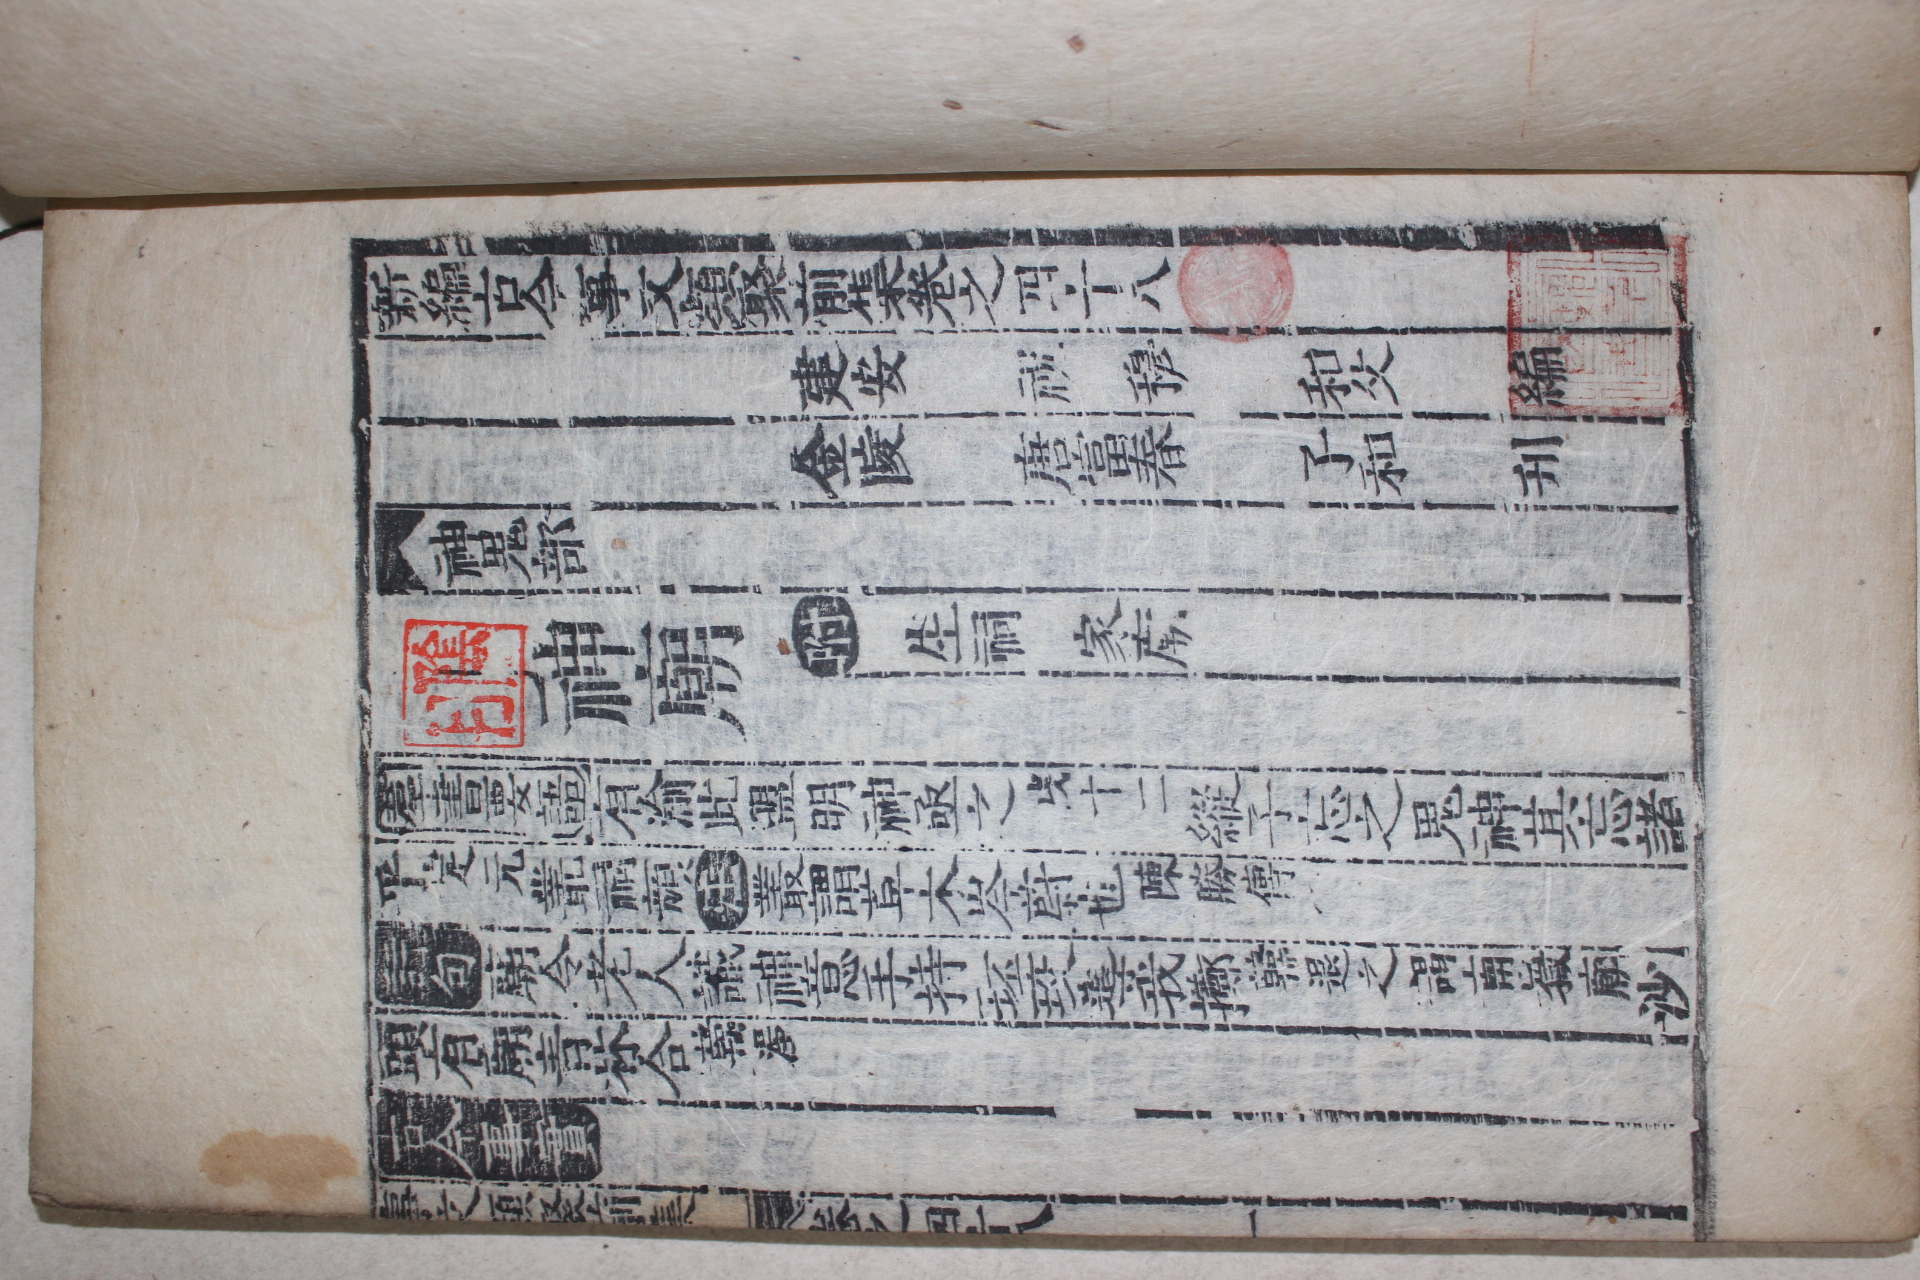 新編古今事文類聚前集卷之四十八
建安 祝 穆 和父 編
金陵 唐富春 子和 刋
神鬼部
神廟 附 生祠 家廟
羣書要語有渝此盟明神殛之 十二 縱子忘之鬼神其忘諸
乎 定元 叢祠 註 叢謂草木岑蔚也 陳勝傳
詩句 廟令老人識神意手持盃珓導我擲 韓退之謁南嶽廟 沙
頭有廟青林合 韓渥
古今事實
事文類聚前集 卷之四十八 一